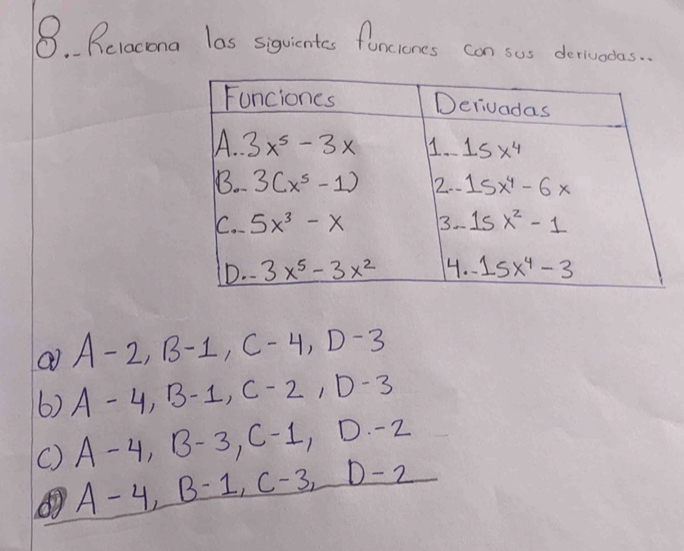 8.- Relaciona las siguientes funciones con sus derivadas..
Funciones Derivadas
A..3x⁵ - 3x 1.-15x⁴
B.-3(x⁵ - 1) 2.-15x⁴ - 6x
C.-5x³ - x 3.-15x² - 1
D.-3x⁵ - 3x² 4.-15x⁴ - 3
a) A-2, B-1, C-4, D-3
b) A-4, B-1, C-2, D-3
c) A-4, B-3, C-1, D.-2
d) A-4, B-1, C-3, D-2